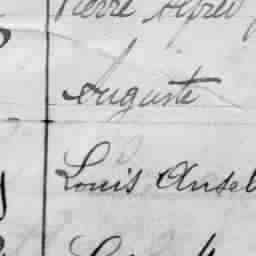 Pierre Alfred
Auguste
Louis Ansel